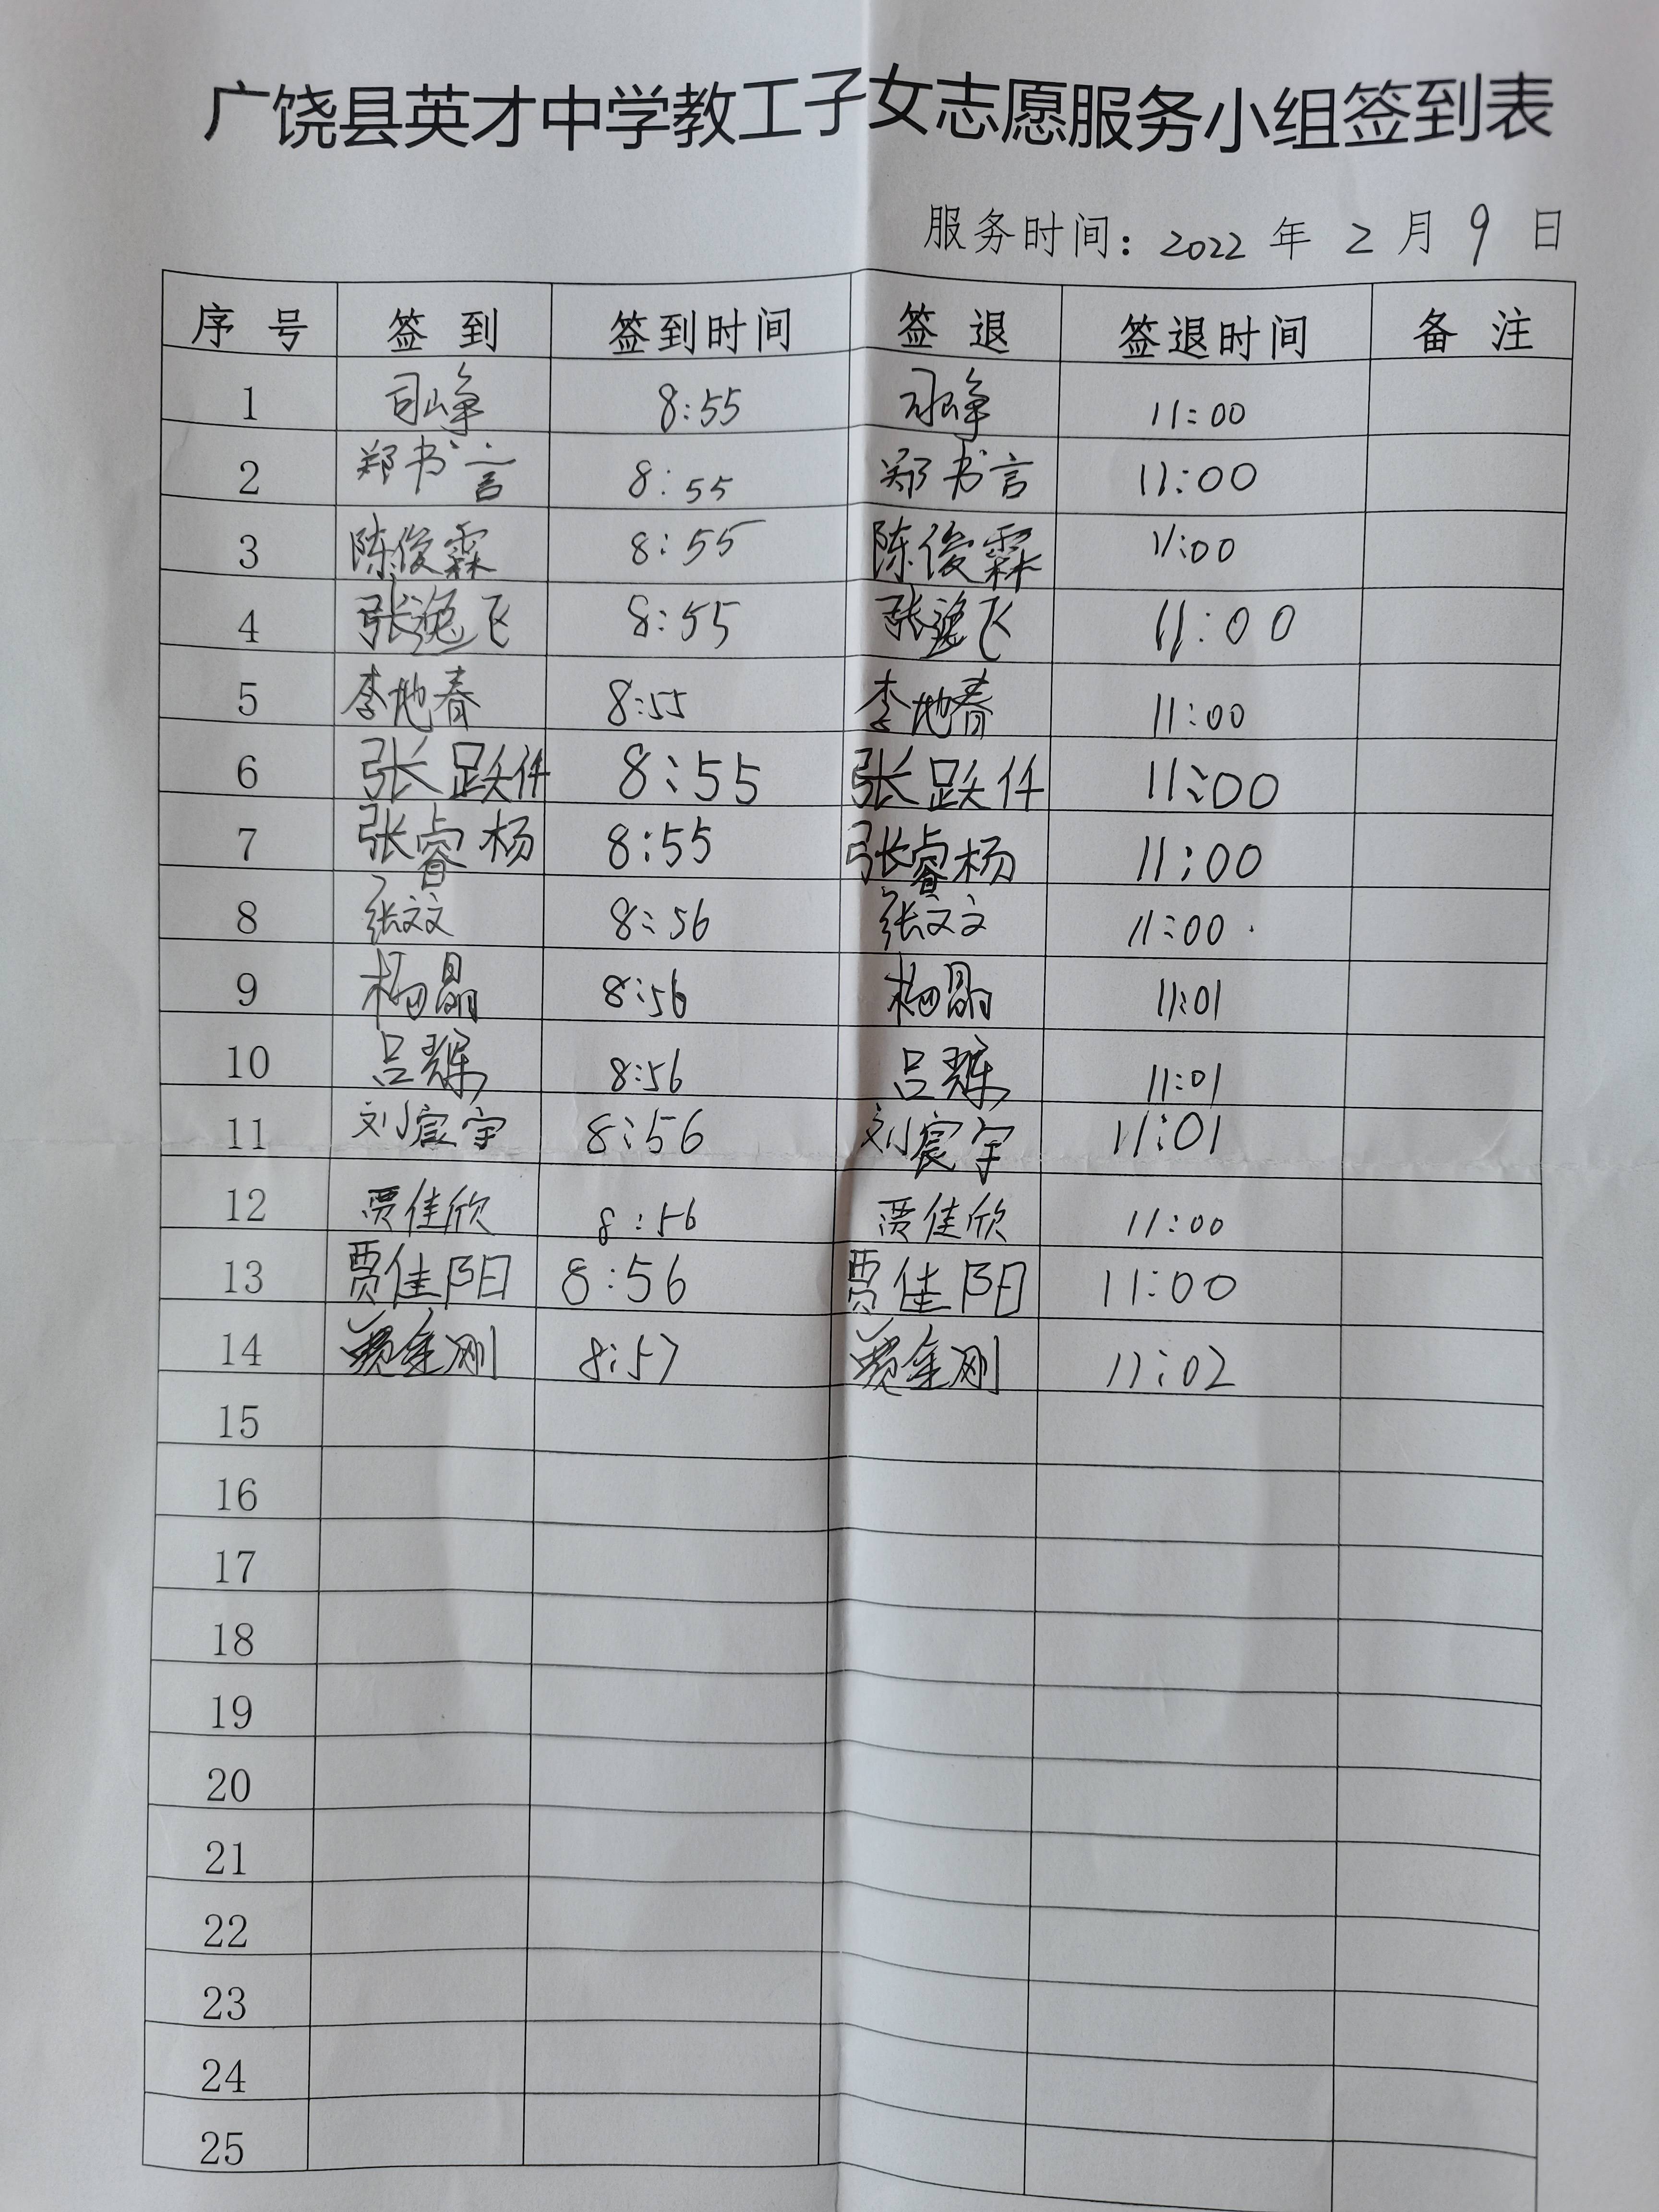 广饶县英才中学教工子女志愿服务小组签到表
服务时间：2022 年 2 月 9 日
序 号 签 到 签到时间 签 退 签退时间 备 注
1 司峥 8:55 司峥 11:00
2 郑书言 8:55 郑书言 11:00
3 陈俊霖 8:55 陈俊霖 11:00
4 张逸飞 8:55 张逸飞 11:00
5 李地春 8:55 李地春 11:00
6 张跃仟 8:55 张跃仟 11:00
7 张睿杨 8:55 张睿杨 11:00
8 张文文 8:56 张文文 11:00
9 杨晶 8:56 杨晶 11:01
10 吕耀 8:56 吕耀 11:01
11 刘宸宇 8:56 刘宸宇 11:01
12 贾佳欣 8:56 贾佳欣 11:00
13 贾佳阳 8:56 贾佳阳 11:00
14 金刚 8:57 金刚 11:02
15
16
17
18
19
20
21
22
23
24
25